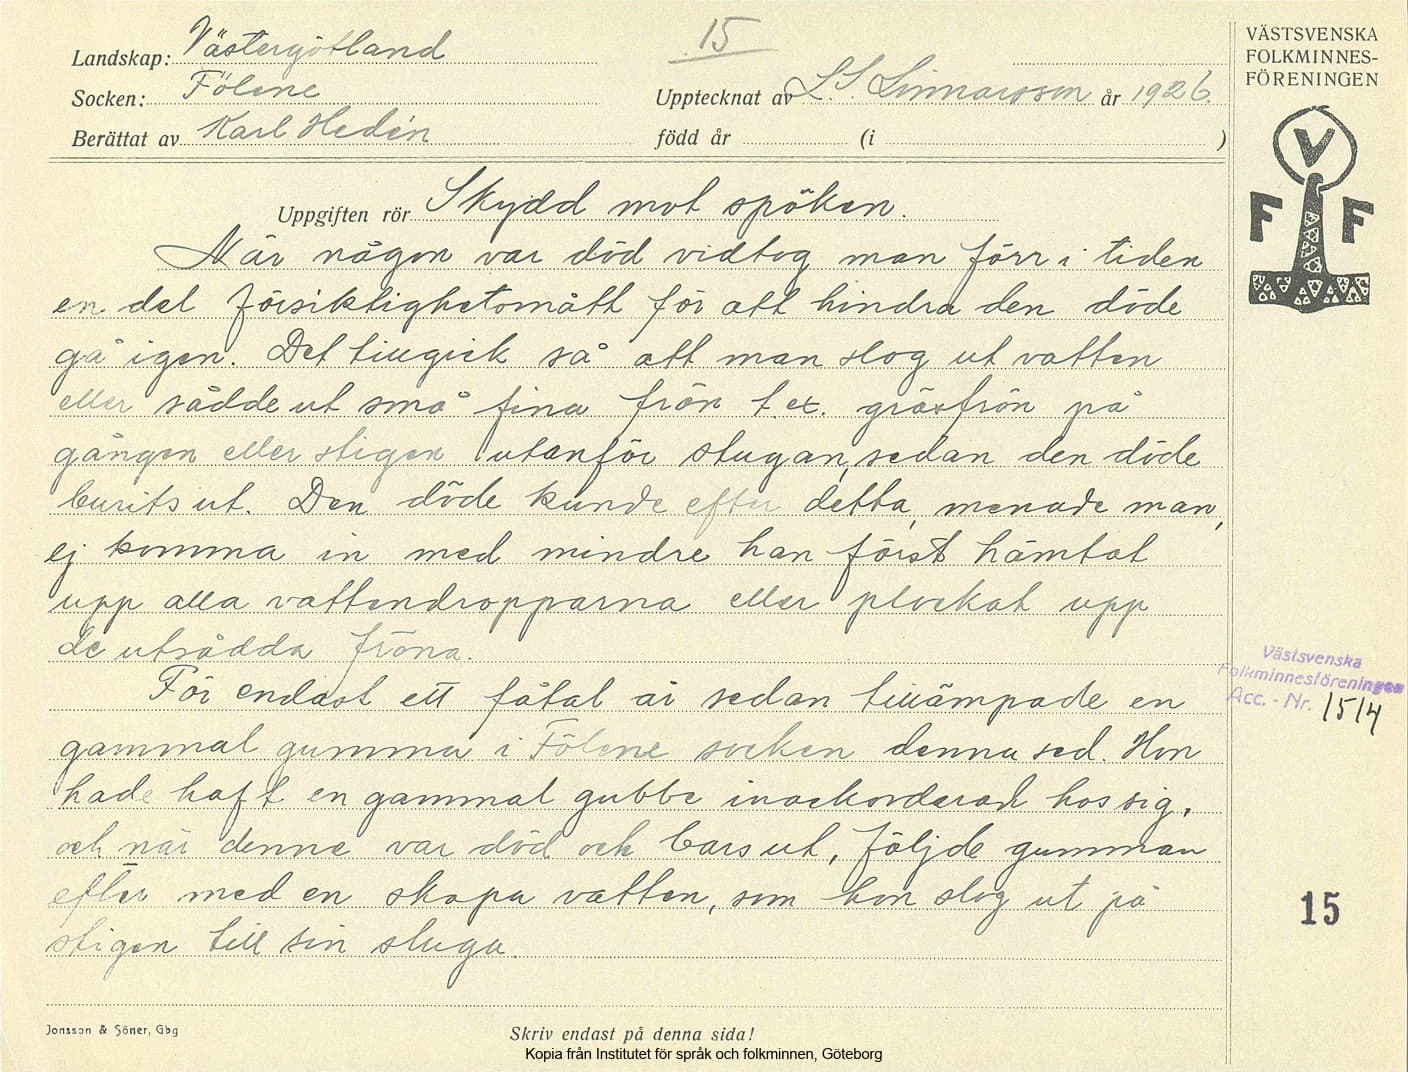 Landskap: Västergötland
Socken: Fölene
Berättat av Karl Hedén
15
Upptecknat av L.S. Linnarsson år 1926.
född år (i )
VÄSTSVENSKA
FOLKMINNES-
FÖRENINGEN
V
F F
Uppgiften rör Skydd mot spöken.
När någon var död vidtog man förr i tiden
en del försiktighetsmått för att hindra den döde
gå igen. Det tillgick så att man slog ut vatten
eller sådde ut små fina frön t.ex. gräsfrön på
gången eller stigen utanför stugan, sedan den döde
burits ut. Den döde kunde efter detta, menade man,
ej komma in med mindre han först hämtat
upp alla vattendropparna eller plockat upp
de utsådda fröna.
För endast ett fåtal år sedan tillämpade en
gammal gumma i Fölene socken denna sed. Hon
hade haft en gammal gubbe inackorderad hos sig,
och när denne var död och bars ut, följde gumman
efter med en skopa vatten, som hon slog ut på
stigen till sin stuga.
Västsvenska
Folkminnesföreningen
Acc. - Nr. 1514
15
Jonsson & Söner, Gbg
Skriv endast på denna sida!
Kopia från Institutet för språk och folkminnen, Göteborg